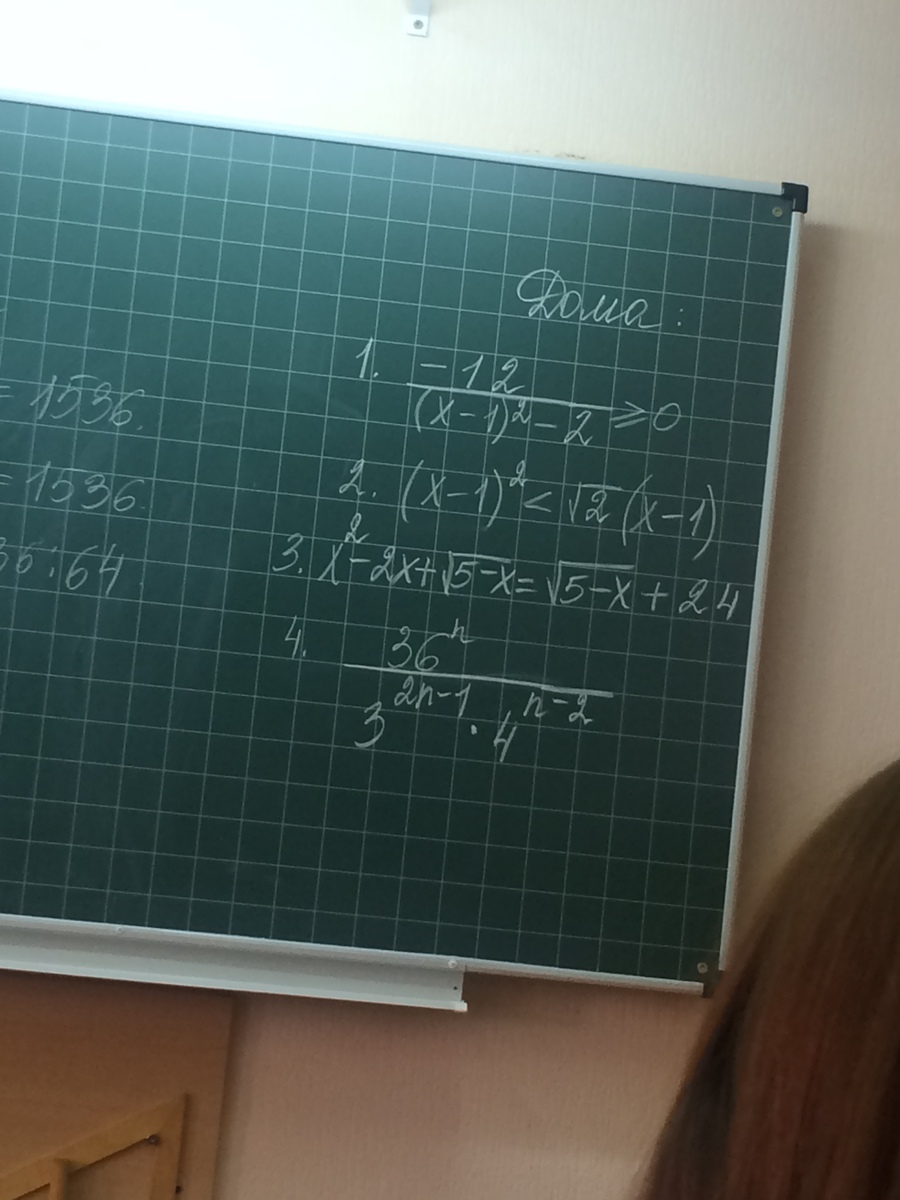 = 1536.
= 1536.
36:64
Дома:
1. -12/((x-1)² - 2) ≥ 0
2. (x-1)² < √2(x-1)
3. x² - 2x + √(5-x) = √(5-x) + 24
4. 36ⁿ/(3²ⁿ⁻¹ · 4ⁿ⁻²)